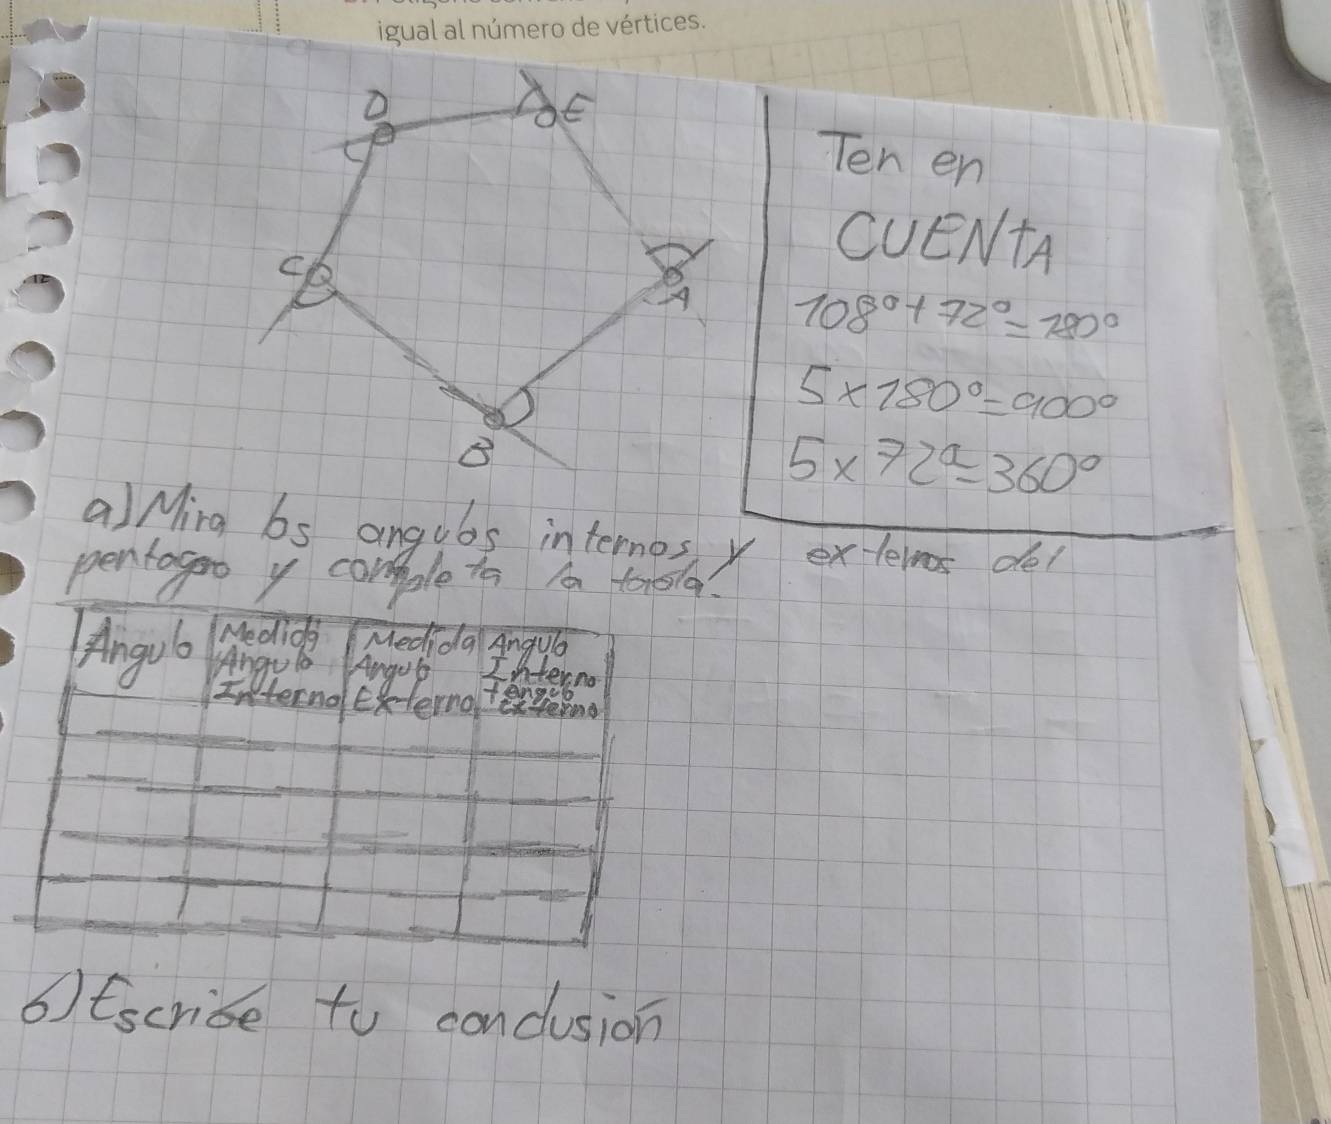 igual al número de vértices.
D
E
C
A
B
Ten en
CUENTA
108° + 72° = 180°
5 x 180° = 900°
5 x 72° = 360°
a) Mira los angulos internos y externos del
pentagono y completa la tabla.
Angulo
Medida
Angulo
Interno
Medida
Angulo
Externo
Angulo
Interno
+angulo
externo
b) Escribe tu conclusión